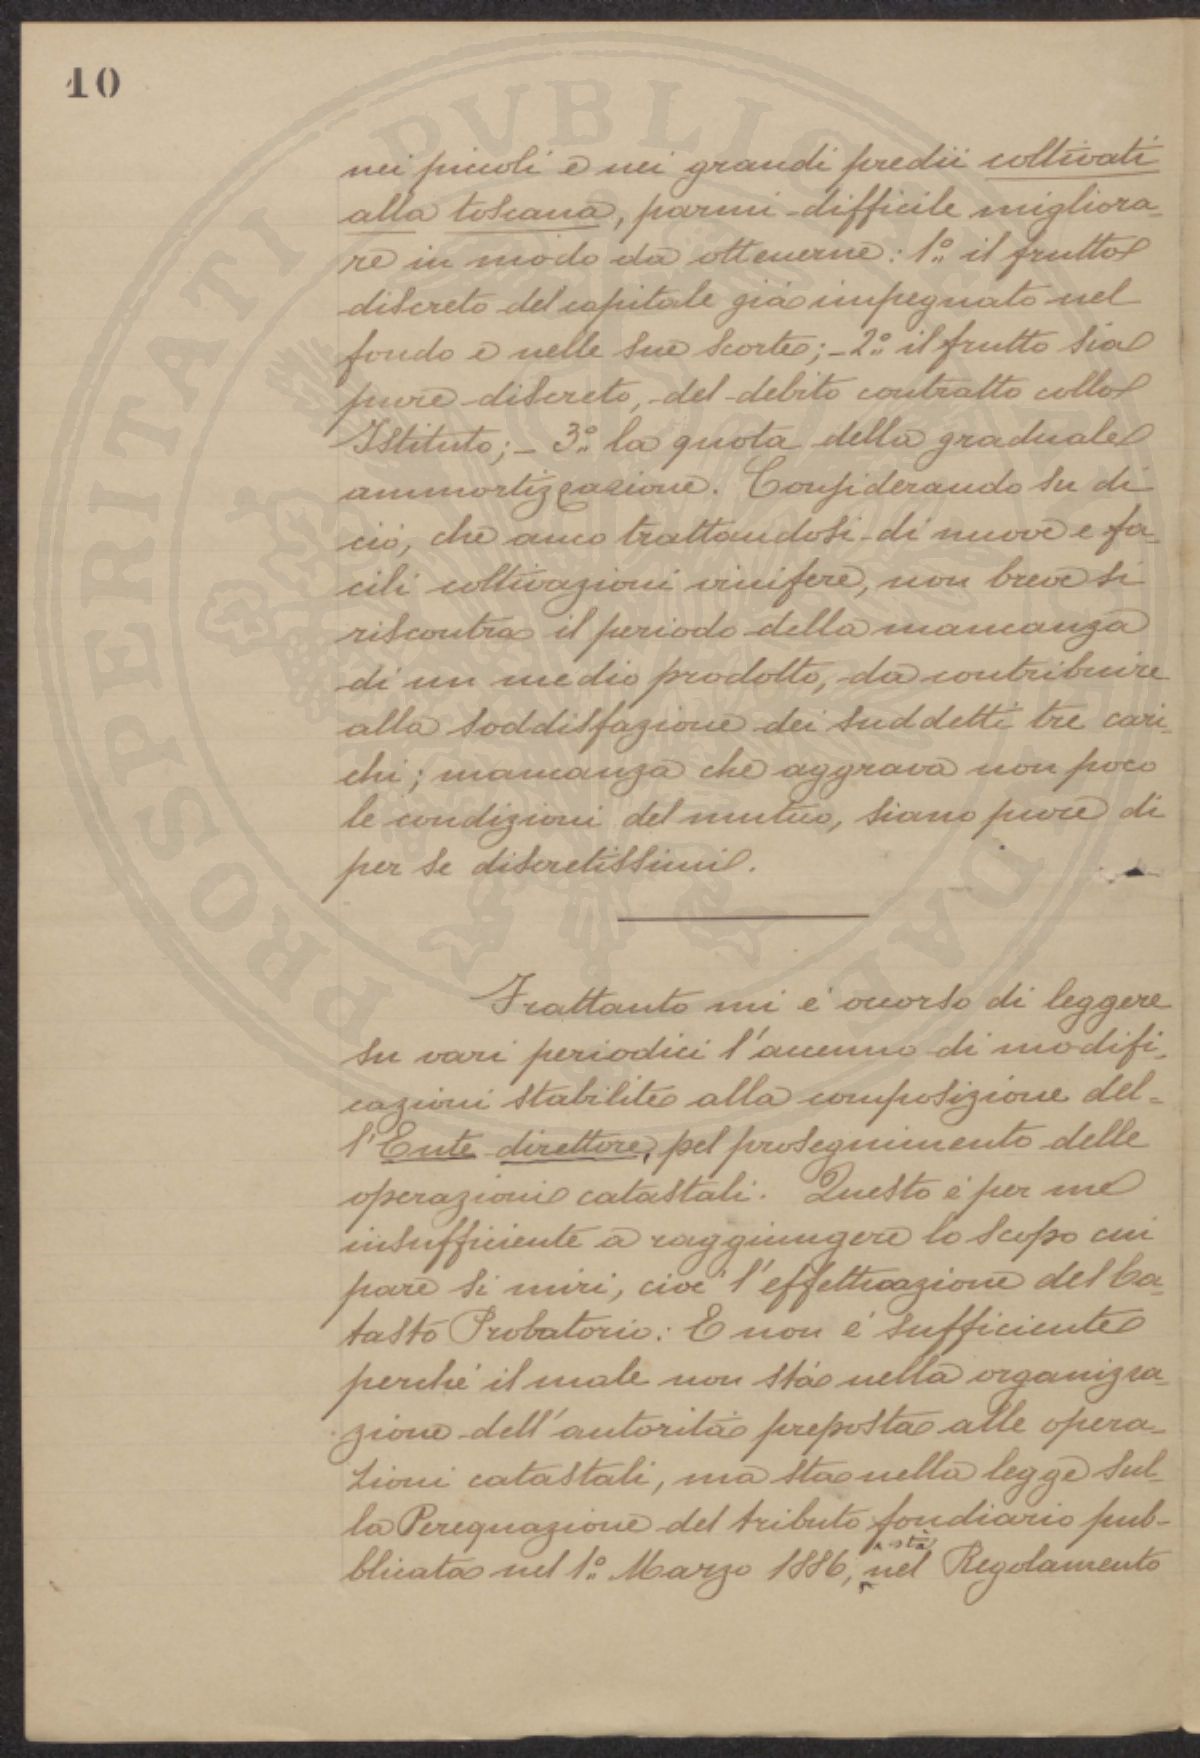 10
nei piccoli e nei grandi predii coltivati
alla toscana, parmi difficile migliora-
re in modo da ottenerne: 1.° il frutto
discreto del capitale già impegnato nel
fondo e nelle sue scorte; - 2.° il frutto sia
pure discreto, del debito contratto collo
Istituto; - 3.° la quota della graduale
ammortizzazione. Considerando su di
ciò, che anco trattandosi di nuove e fa-
cili coltivazioni vinifere, non breve si
riscontra il periodo della mancanza
di un medio prodotto, da contribuire
alla soddisfazione dei suddetti tre cari-
chi; mancanza che aggrava non poco
le condizioni del mutuo, siano pure di
per se discretissimi.
Frattanto mi è occorso di leggere
su vari periodici l'accenno di modifi-
cazioni stabilite alla composizione del-
l'Ente direttore, pel proseguimento delle
operazioni catastali. Questo è per me
insufficiente a raggiungere lo scopo cui
pare si miri, cioè l'effettuazione del Ca-
tasto Probatorio: E non è sufficiente
perchè il male non stà nella organizza-
zione dell'autorità preposta alle opera-
zioni catastali, ma sta nella legge sul-
la Perequazione del tributo fondiario pub-
blicata nel 1.° Marzo 1886, sta nel Regolamento
PROSPERITATI PVBLICAE